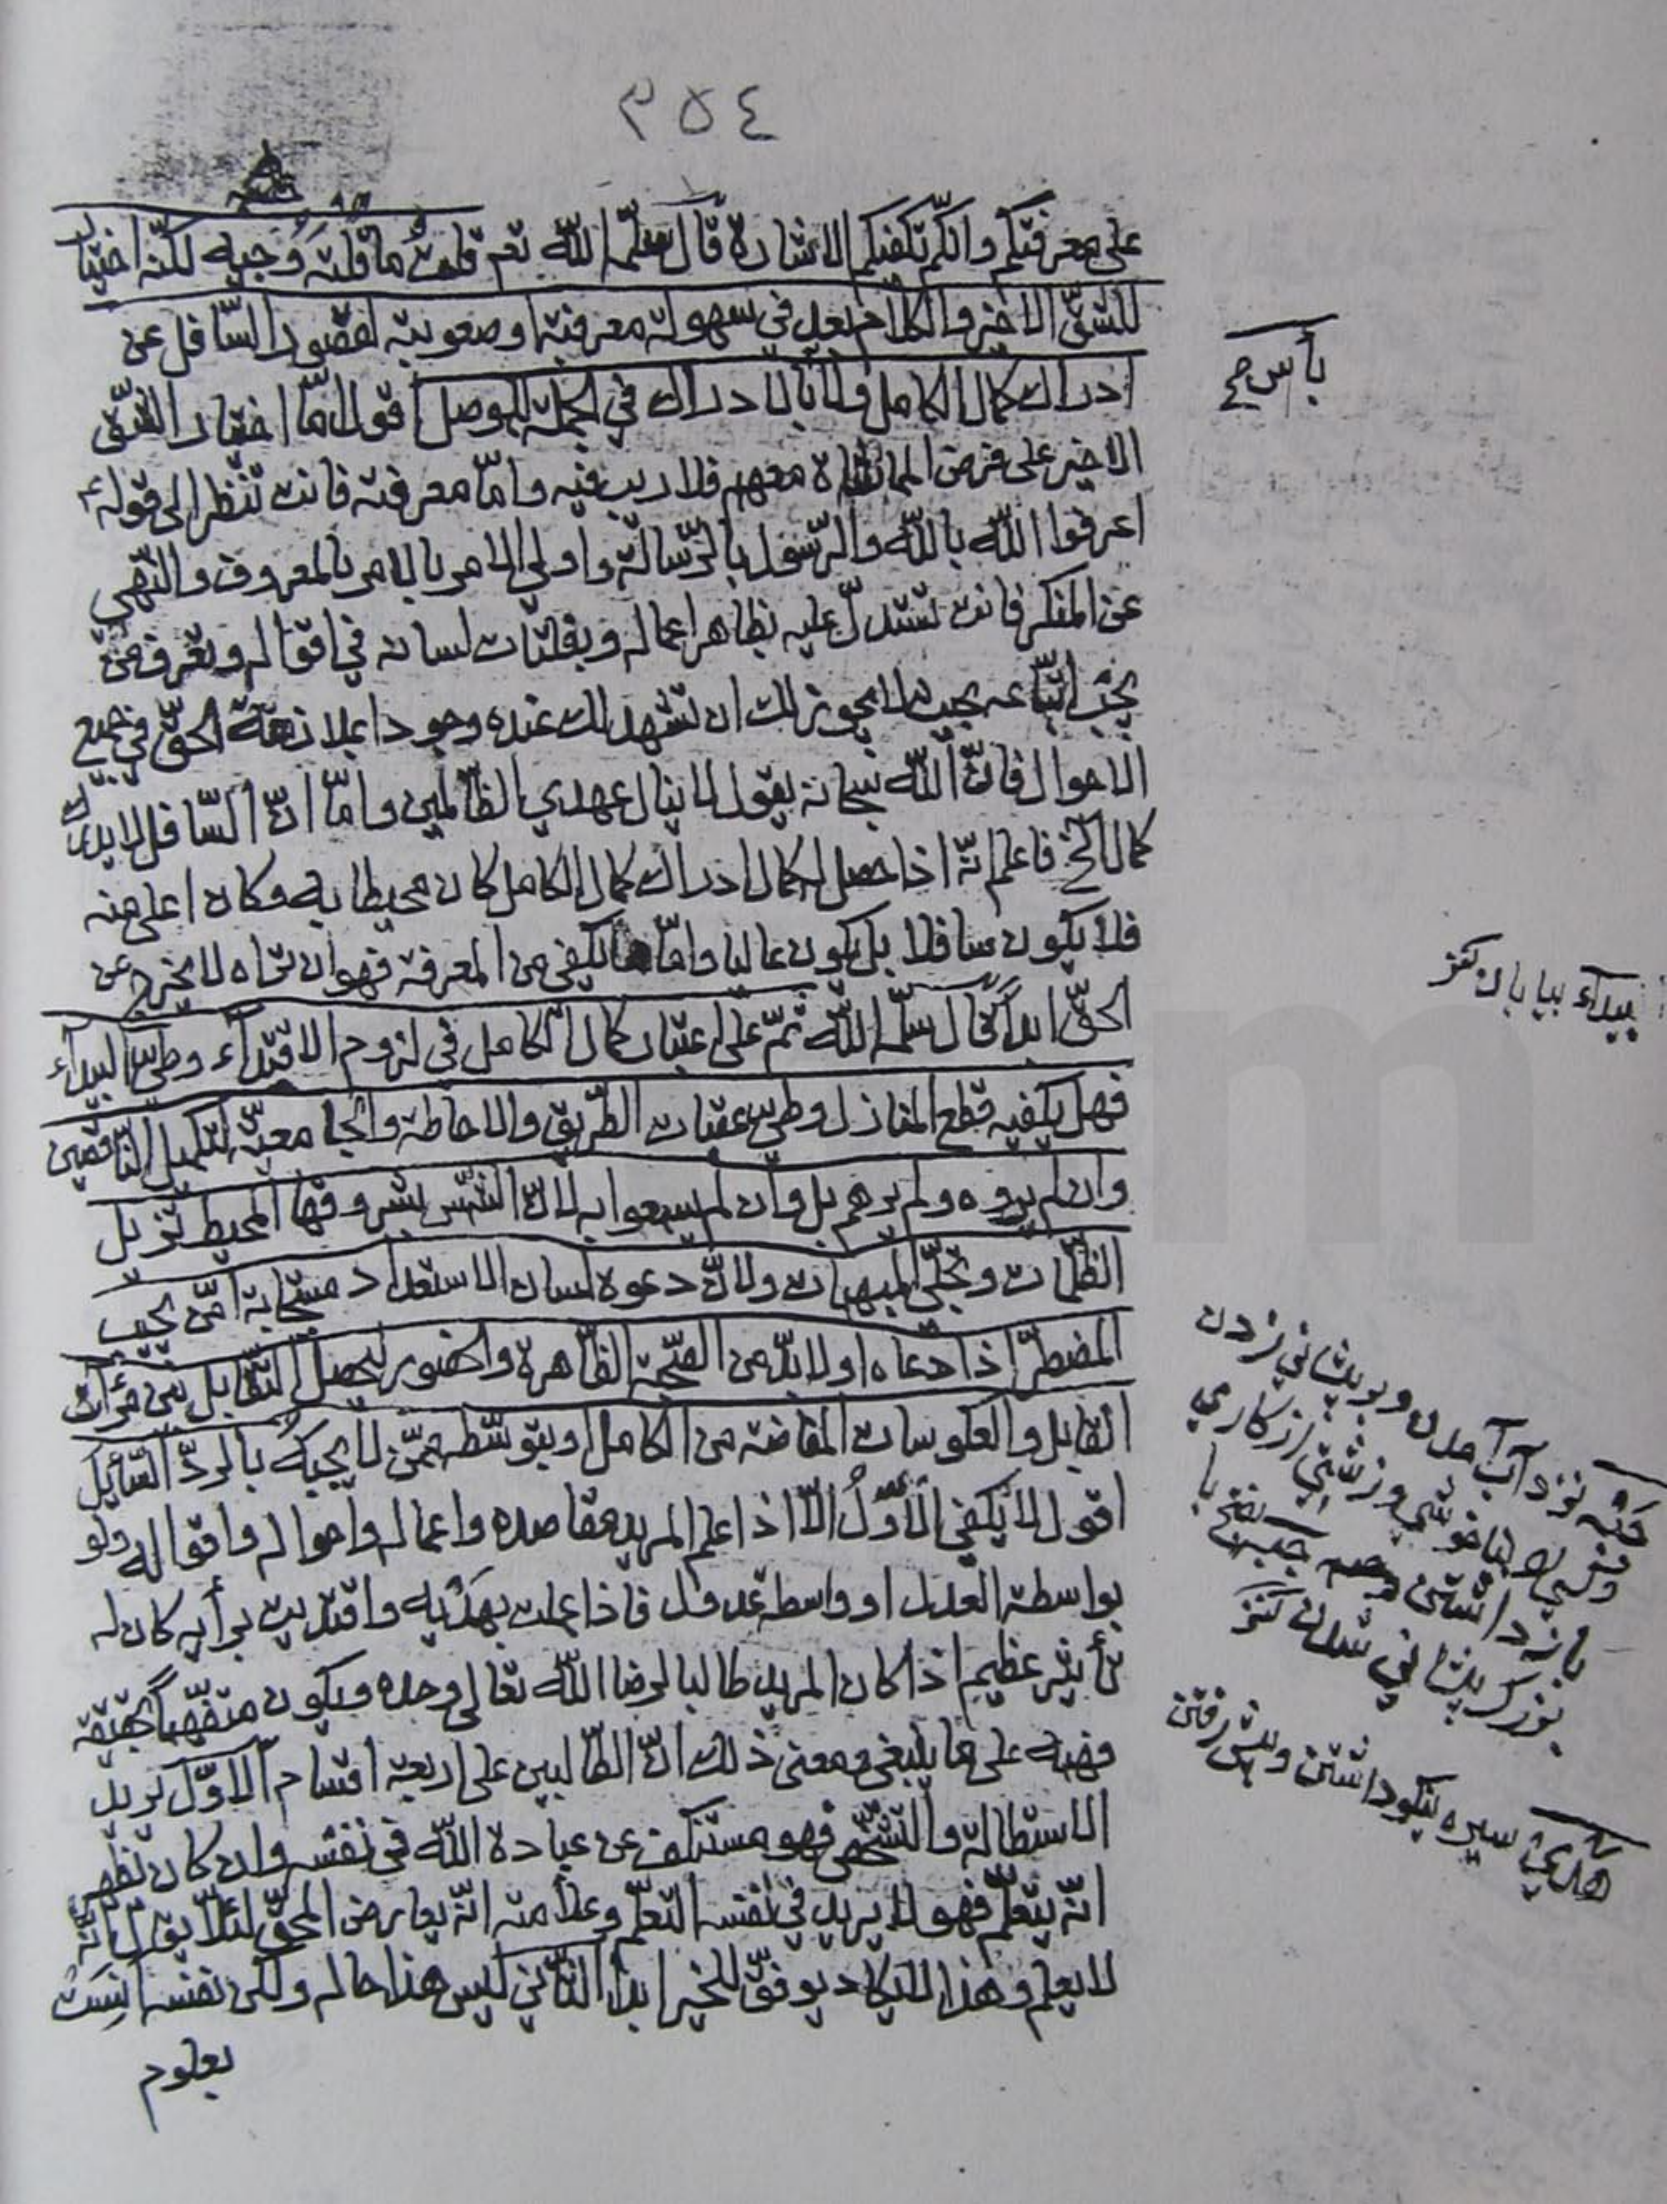 ٣٥٤
على معرفتكم وانكم تكفيكم الاشارة قال سلمه الله نعم قلت ما قلته وجيه لكنه اختيار
للشق الاخير والكلام بعد في سهولة معرفته وصعوبته لقصور السافل عن
ادراك كمال الكامل ولا بأس بالادراك في الجملة اقول اما اختيار الشق
الاخير على فرض معهم فلا ريب فيه واما معرفته فانت تنظر الى قوله ع
اعرفوا الله بالله والرسول بالرسالة واولي الامر بالامر بالمعروف والنهي
عن المنكر فانت تستدل عليه بظاهر اعماله وبفلتات لسانه في اقواله وتعرف من
يجب اتباعه بحيث لا يجوز لك ان تشهد لك عنده وجودا بملازمة الحق في جميع
الاحوال فان الله سبحانه يقول لا ينال عهدي الظالمين واما ان السافل لا يدرك
كمال الخ فاعلم انه اذا حصل ادراك كمال الكامل كان محيطا به وكان اعلى منه
فلا يكون سافلا بل يكون عاليا واما ما يكفي من المعرفة فهو ان تراه لا يخرج عن
الحق ابدا قال سلمه الله ثم على اعتبار كمال الكامل في لزوم الاقتداء وطي البيداء
فهل يكفيه قطع المنازل وطي عقبات الطريق والاحاطة والجامعية لتكميل الناقصين
وان لم يروه ولم يرهم بل وان لم يسمعوا به لان الشمس بشروقها المحيط تزيل
الظلمات وتجلي المبهمات ولان دعوة لسان الاستعداد مستجابة امن يجيب
المضطر اذا دعاه او لا بد من الصحبة الظاهرة والحضور ليحصل التقابل بين مرآت
القابل والعكوسات المفاضة من الكامل او بتوسطه ممن لا يجبه بالرد السائل
اقول لا يكفي الاول الا اذا علم المريد مقاصده واعماله واحواله واقواله ولو
بواسطة العدل او واسطة عدول فاذا عملت بهديه واقتديت برأيه كان له
تأثير عظيم اذا كان المريد طالبا لرضا الله تعالى وحده ويكون متفهما
على ما ينبغي ومعنى ذلك ان الطالبين على اربعة اقسام الاول يريد
الاستطالة فهو مستنكف عن عبادة الله في نفسه وان كان يظهر
انه يتعلم فهو لا يريد في نفسه التعلم وعلامته انه يعارض المحق لئلا يقال انه
لا يعلم وهذا لا يكاد يوفق للخير ابدا الثاني ليس هذا حاله ولكن نفسه انست
بعلوم
بأس صح
بيداء بيابان كنز
نزد آب آمدن وبر پيشاني زدن
وزشتي ازكاري
باز داشتن
بزرك پيشاني شدن كنز
هدي سيره نيكو داشتن وپيش رفتن